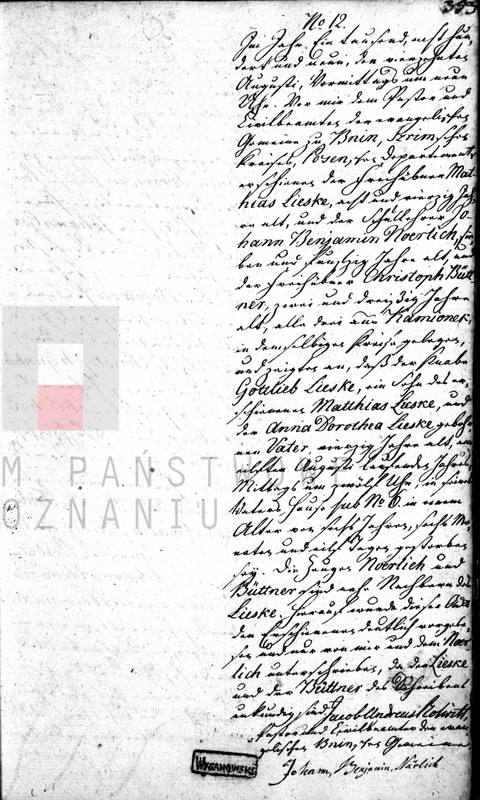 353
No 12.
Im Jahr Ein tausend, acht hun-
dert und neun, den vierzehnten
Augusti, Vormittags um neun
Uhr. Vor mir dem Pastor und
Civilbeamten der evangelischen
Gemeine zu Bnin, Schrimschen
Kreises, Posenschen Departements
erschienen der Freihübner Mat-
hias Lieske, acht und vierzig Jah-
re alt, und der Schullehrer Jo-
hann Benjamin Noerlich, sie-
ben und funfzig Jahre alt, und
der Freihübner Christoph Bütt-
ner, zwei und dreißig Jahre
alt, alle drei aus Kamionek,
in demselbigen Kreise gelegen,
und zeigten an, daß der Knabe
Gottlieb Lieske, ein Sohn des er-
schienenen Matthias Lieske, und
der Anna Dorothea Lieske gebohr-
nen Vater, vierzig Jahre alt, am
eilften Augusti laufenden Jahres,
Mittags um zwölf Uhr, in seines
Vaters Hause sub No 6. in einem
Alter von sechs Jahren, sechs Mo-
naten und eilf Tagen gestorben
sey. Die Zeugen Noerlich und
Büttner sind nahe Nachbarn des
Lieske. Hierauf wurde dieser Act
den Erschienenen deutlich vorgele-
sen und nur von mir und dem Noer-
lich unterschrieben, da der Lieske
und der Büttner des Schreibens
unkundig sind. Jacob Andreas
Pastor und Civilbeamter der evan-
gelischen Bninschen Gemeine
Johann, Benjamin, Nörlich
WYGANOWSKI
M PAŃSTW
OZNANIU